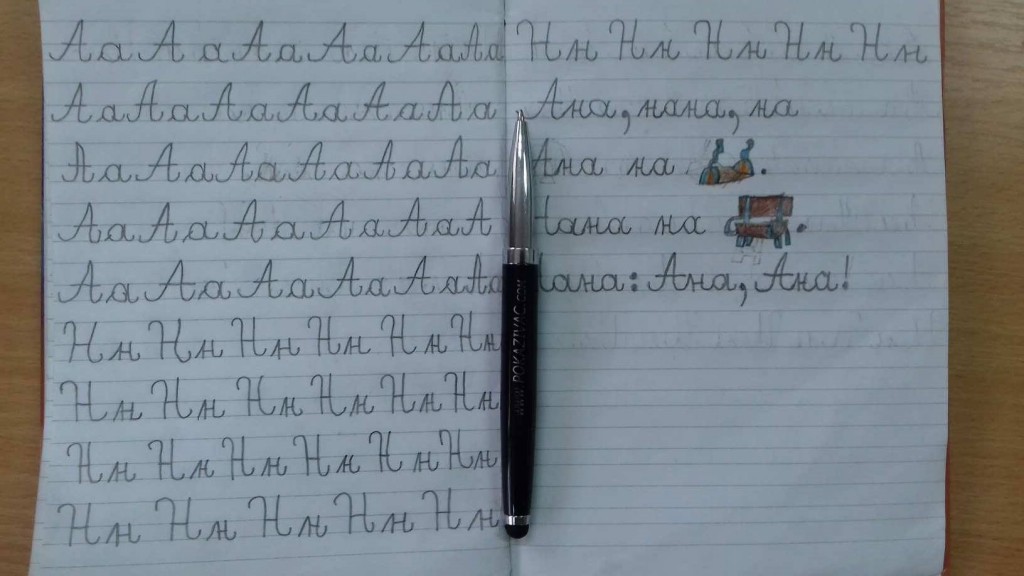 Аа Аа Аа Аа Аа Аа
Аа Аа Аа Аа Аа Аа
Аа Аа Аа Аа Аа Аа
Аа Аа Аа Аа Аа А
Аа Аа Аа Аа Аа Аа
Нн Нн Нн Нн Нн Нн
Нн Нн Нн Нн Нн Нн
Нн Нн Нн Нн Нн Нн
Нн Нн Нн Нн Нн
Нн Нн Нн Нн Нн
Ана, нана, на
Ана на .
Нана на .
Нана: Ана, Ана!
WWW.POKAZIVAC.COM